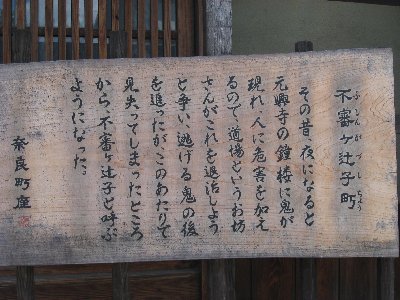 不審ヶ辻子町
ふしんがづしちょう
その昔、夜になると
元興寺の鐘楼に鬼が
現れ、人に危害を加え
るので、道場というお坊
さんがこれを退治しよう
と争い、逃げる鬼の後
を追ったがこのあたりで
見失ってしまったところ
から、不審ヶ辻子と呼ぶ
ようになった。
奈良町座